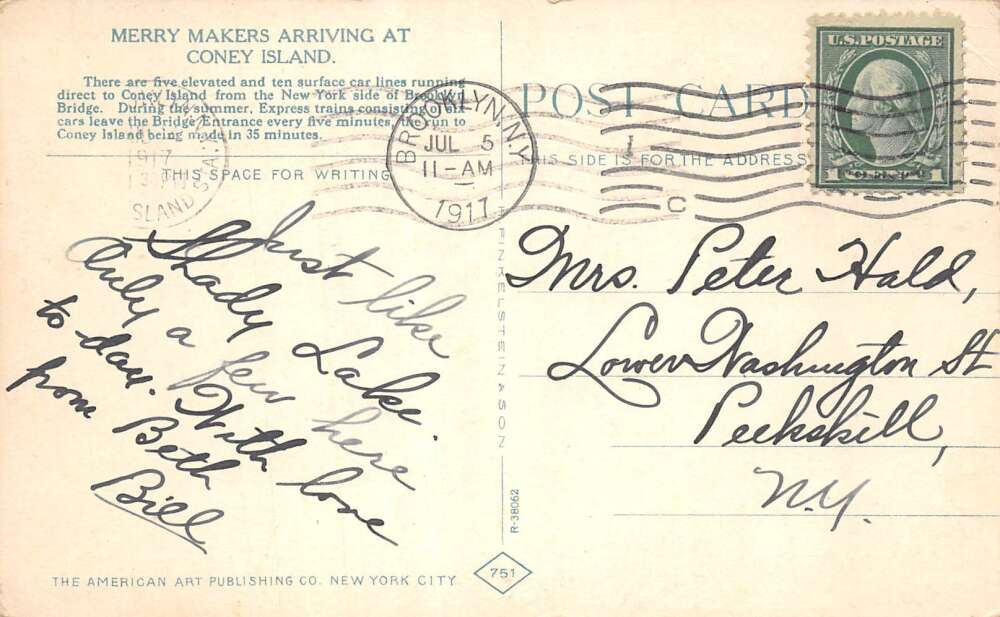 MERRY MAKERS ARRIVING AT
CONEY ISLAND.
There are five elevated and ten surface car lines running
direct to Coney Island from the New York side of Brooklyn
Bridge. During the summer. Express trains consisting of six
cars leave the Bridge Entrance every five minutes, the run to
Coney Island being made in 35 minutes.
THIS SPACE FOR WRITING
Just like
Shady Lake.
Only a few here
to-day. With love
from Beth
Bill
THE AMERICAN ART PUBLISHING CO. NEW YORK CITY
H. FINKELSTEIN & SON
R-38062
751
POST CARD
THIS SIDE IS FOR THE ADDRESS
BROOKLYN, N.Y.
JUL 5
11-AM
1917
1
C
1917
ISLAND STA.
U.S. POSTAGE
1 CENT 1
Mrs. Peter Hald,
Lower Washington St
Peekskill,
N.Y.